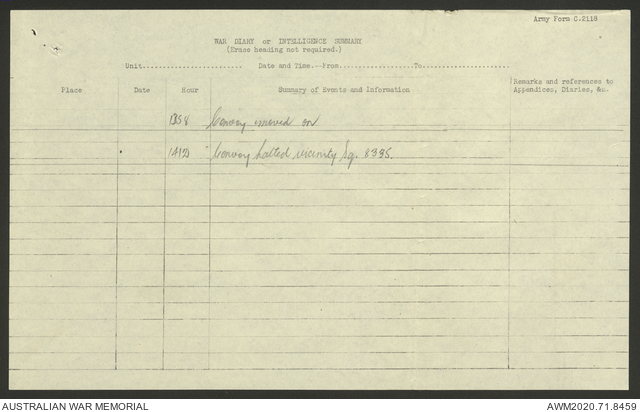 Army Form C.2118
WAR DIARY or INTELLIGENCE SUMMARY
(Erase heading not required.)
Unit....................... Date and Time.--From.................To....................
Place Date Hour Summary of Events and Information Remarks and references to Appendices, Diaries, &c.
1358 Convoy moved on
1412 Convoy halted vicinity Sq. 8335.
AUSTRALIAN WAR MEMORIAL AWM2020.71.8459